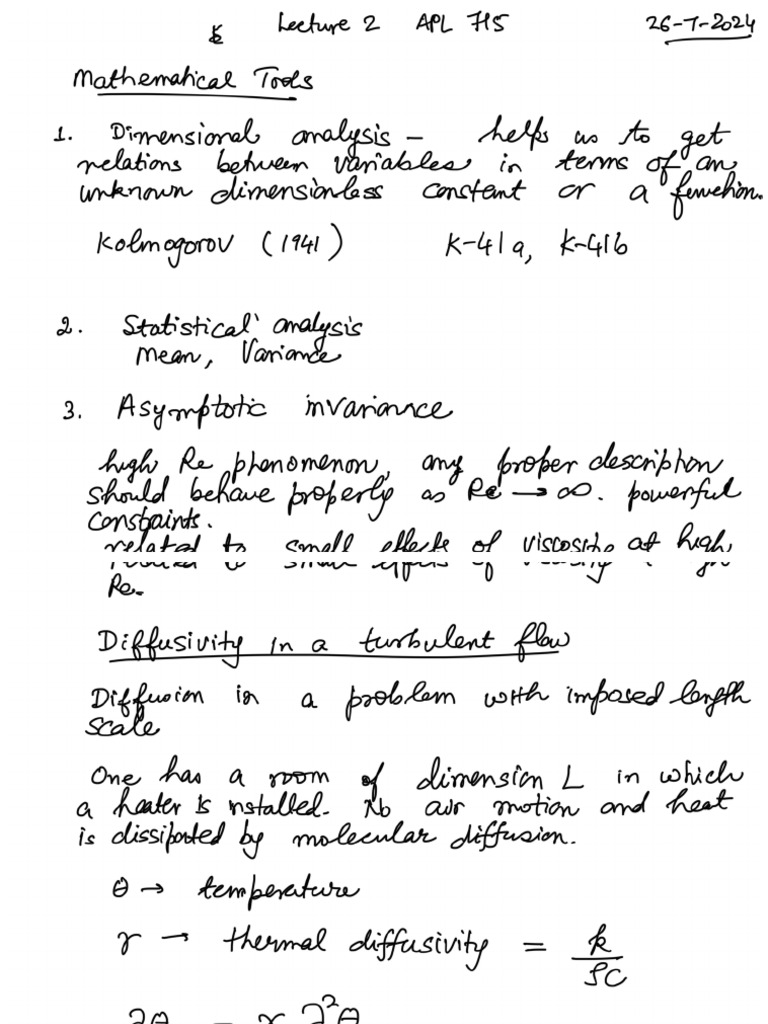 Lecture 2 APL 715 26-7-2024
Mathematical Tools
1. Dimensional analysis – helps us to get
relations between variables in terms of an
unknown dimensionless constant or a function.
Kolmogorov (1941) K-41a, K-41b
2. Statistical analysis
Mean, Variance
3. Asymptotic invariance
high Re phenomenon, any proper description
should behave properly as Re → ∞. powerful
constraints.
related to small effects of viscosity at high
Re.
Diffusivity in a turbulent flow
Diffusion in a problem with imposed length
scale
One has a room of dimension L in which
a heater is installed. No air motion and heat
is dissipated by molecular diffusion.
θ → temperature
γ → thermal diffusivity = k/ρC
∂θ = γ ∂²θ